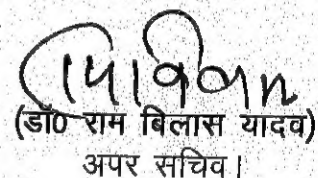 (डॉ0 राम बिलास यादव)
अपर सचिव।